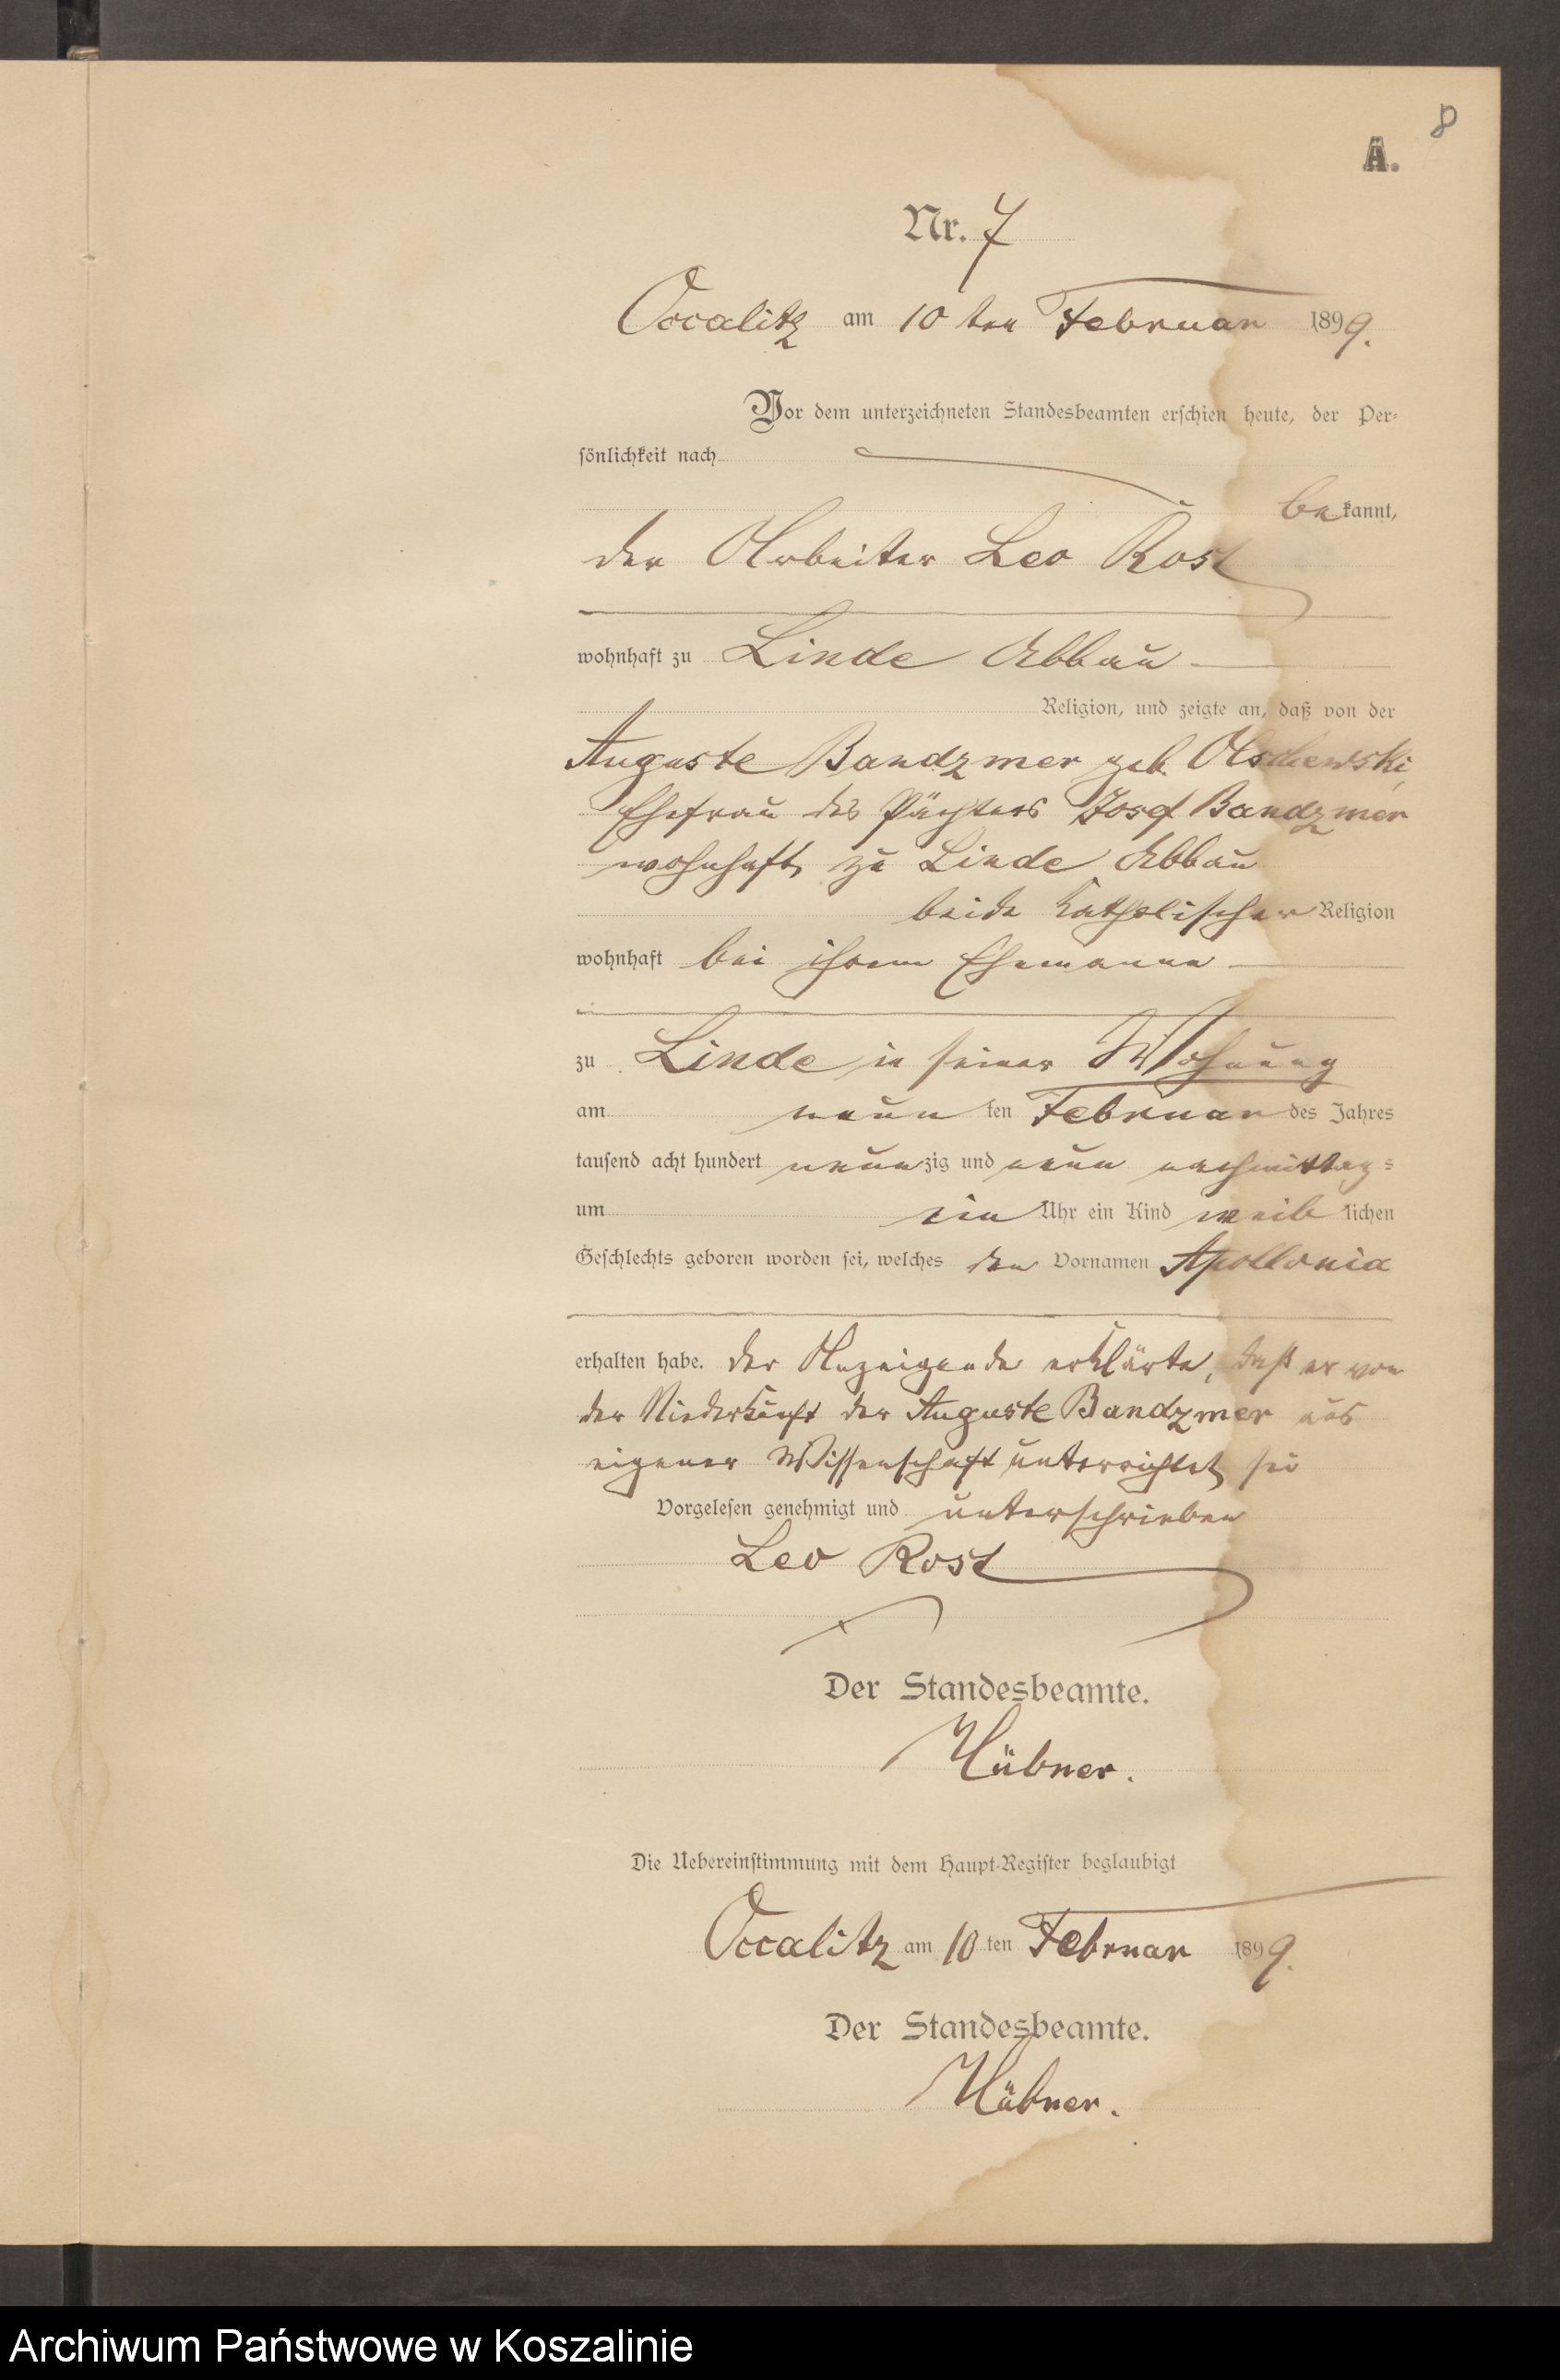 8
A.
Nr. 7
Occalitz am 10 ten Februar 1899.
Vor dem unterzeichneten Standesbeamten erschien heute, der Per-
sönlichkeit nach
bekannt,
der Arbeiter Leo Rost
wohnhaft zu Linde Abbau
Religion, und zeigte an, daß von der
Auguste Bandzmer geb. Olschewski,
Ehefrau des Pächters Josef Bandzmer
wohnhaft zu Linde Abbau
beide katholischer Religion
wohnhaft bei ihrem Ehemanne
zu Linde in seiner Wohnung
am neun ten Februar des Jahres
tausend acht hundert neunzig und neun nachmittags
um ein Uhr ein Kind weiblichen
Geschlechts geboren worden sei, welches den Vornamen Apollonia
erhalten habe. Der Anzeigende erklärte, daß er von
der Niederkunft der Auguste Bandzmer aus
eigener Wissenschaft unterrichtet sei
Vorgelesen genehmigt und unterschrieben
Leo Rost
Der Standesbeamte.
Hübner.
Die Uebereinstimmung mit dem Haupt-Register beglaubigt
Occalitz am 10 ten Februar 1899.
Der Standesbeamte.
Hübner.
Archiwum Państwowe w Koszalinie